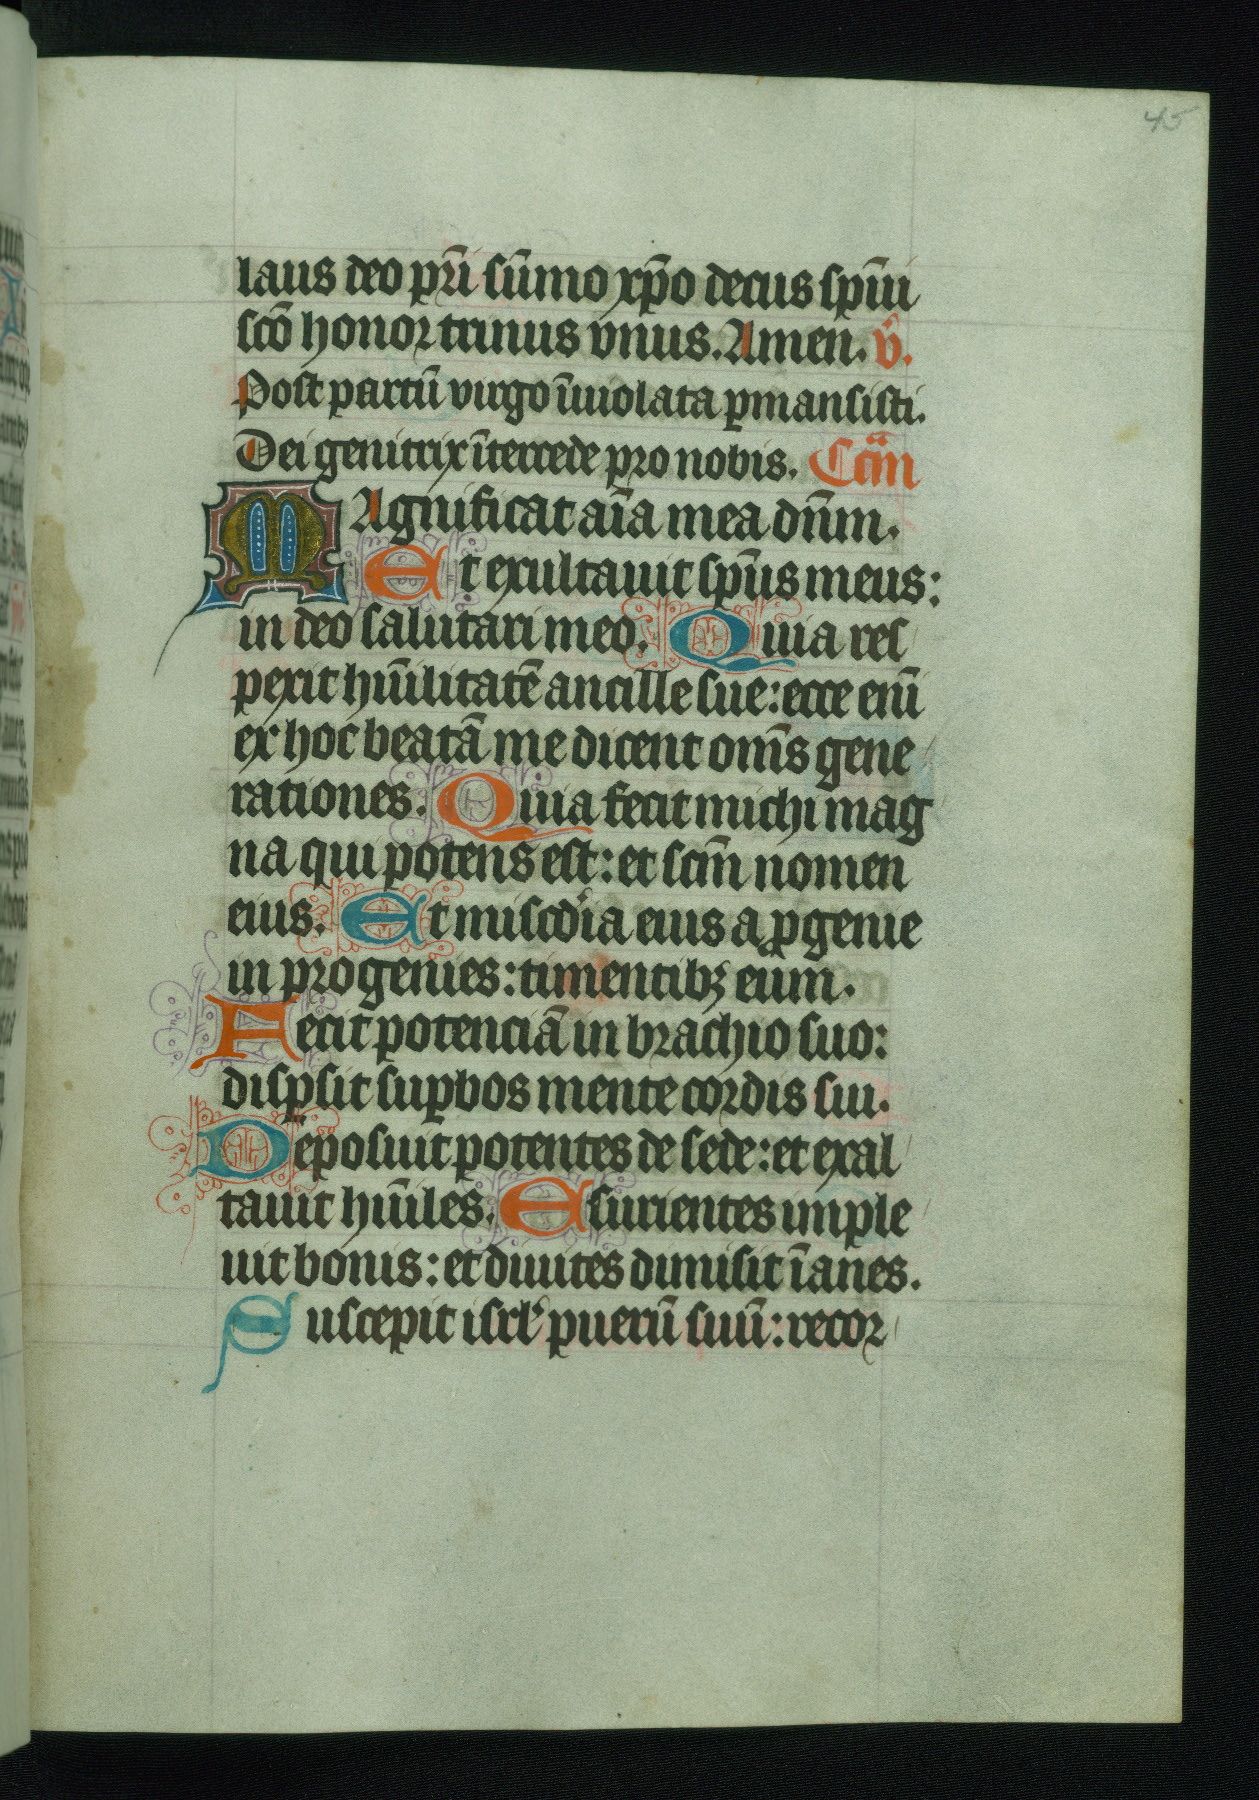 45
laus deo pr̄i sūmo xp̄o decus spūi
scō honor trinus vnus. Amen. v̄.
Post partū virgo īuiolata ꝑmansisti.
Dei genitrix ītercede pro nobis. Cām
Magnificat aīa mea dn̄m.
Et exultauit spūs meus:
in deo salutari meo. Quia res
pexit hūilitatē ancille sue: ecce enī
ex hoc beatā me dicent om̄s gene
rationes. Quia fecit michi mag
na qui potens est: et scm̄ nomen
eius. Et miscd̓ia eius a ꝓgenie
in progenies: timentibꝫ eum.
Fecit potenciā in brachio suo:
disꝑsit suꝑbos mente cordis sui.
Deposuit potentes de sede: et exal
tauit hūiles. Esurientes imple
uit bonis: et diuites dimisit īanes.
Suscepit isrl̓ puerū suū: recor